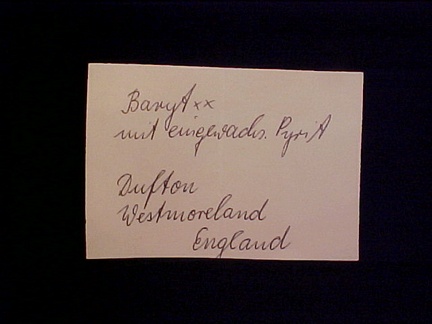 Baryt xx
mit eingewachs. Pyrit
Dufton
Westmoreland
England